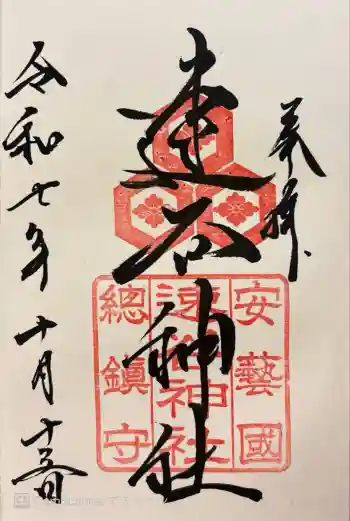 奉拝
速谷神社
安藝國
速谷神社
總鎮守
令和七年十月十三日